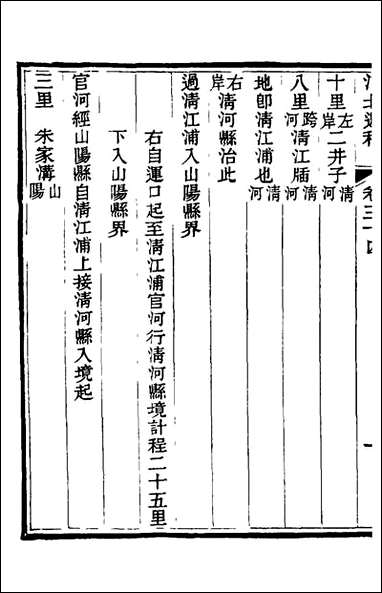 江北運程 卷三十四 一
十里 左岸 二井子 淸河
八里 跨河 淸江牐 淸河
地卽淸江浦也 淸河
右岸 淸河縣治此
過淸江浦入山陽縣界
右自運口起至淸江浦官河行淸河縣境計程二十五里
下入山陽縣界
官河經山陽縣自淸江浦上接淸河縣入境起
三里 朱家溝 山陽